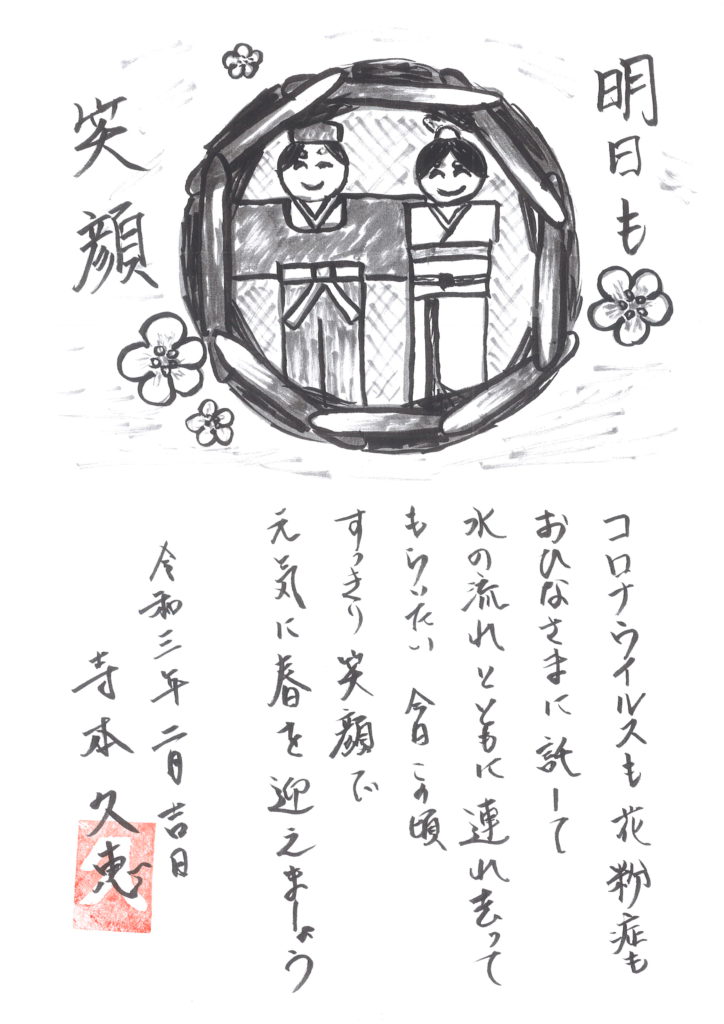 明日も
笑顔
コロナウイルスも花粉症も
おひなさまに託して
水の流れとともに連れ去って
もらいたい 今日この頃
すっきり笑顔で
元気に春を迎えましょう
令和三年二月吉日
寺本久恵
久